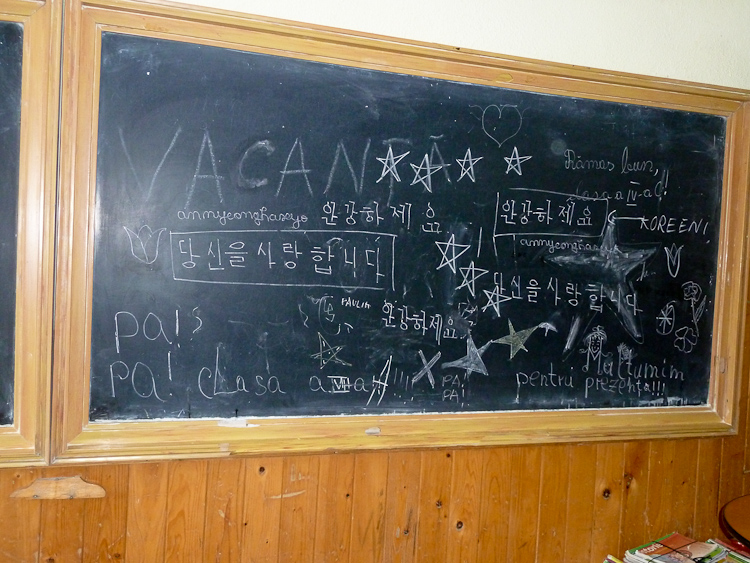 VACANȚĂ
Rămas bun,
clasa a IV-a C!!
annyeonghaseyo 완강하제요
완강하제요
KOREENI!
annyeonghaseyo
당신을사랑합니다
당신을사랑합니다
PAULIA
완강하제요
pa!
pa! clasa a VII a A!!!!
PA!
PA!
Mulțumim
pentru prezență!!!